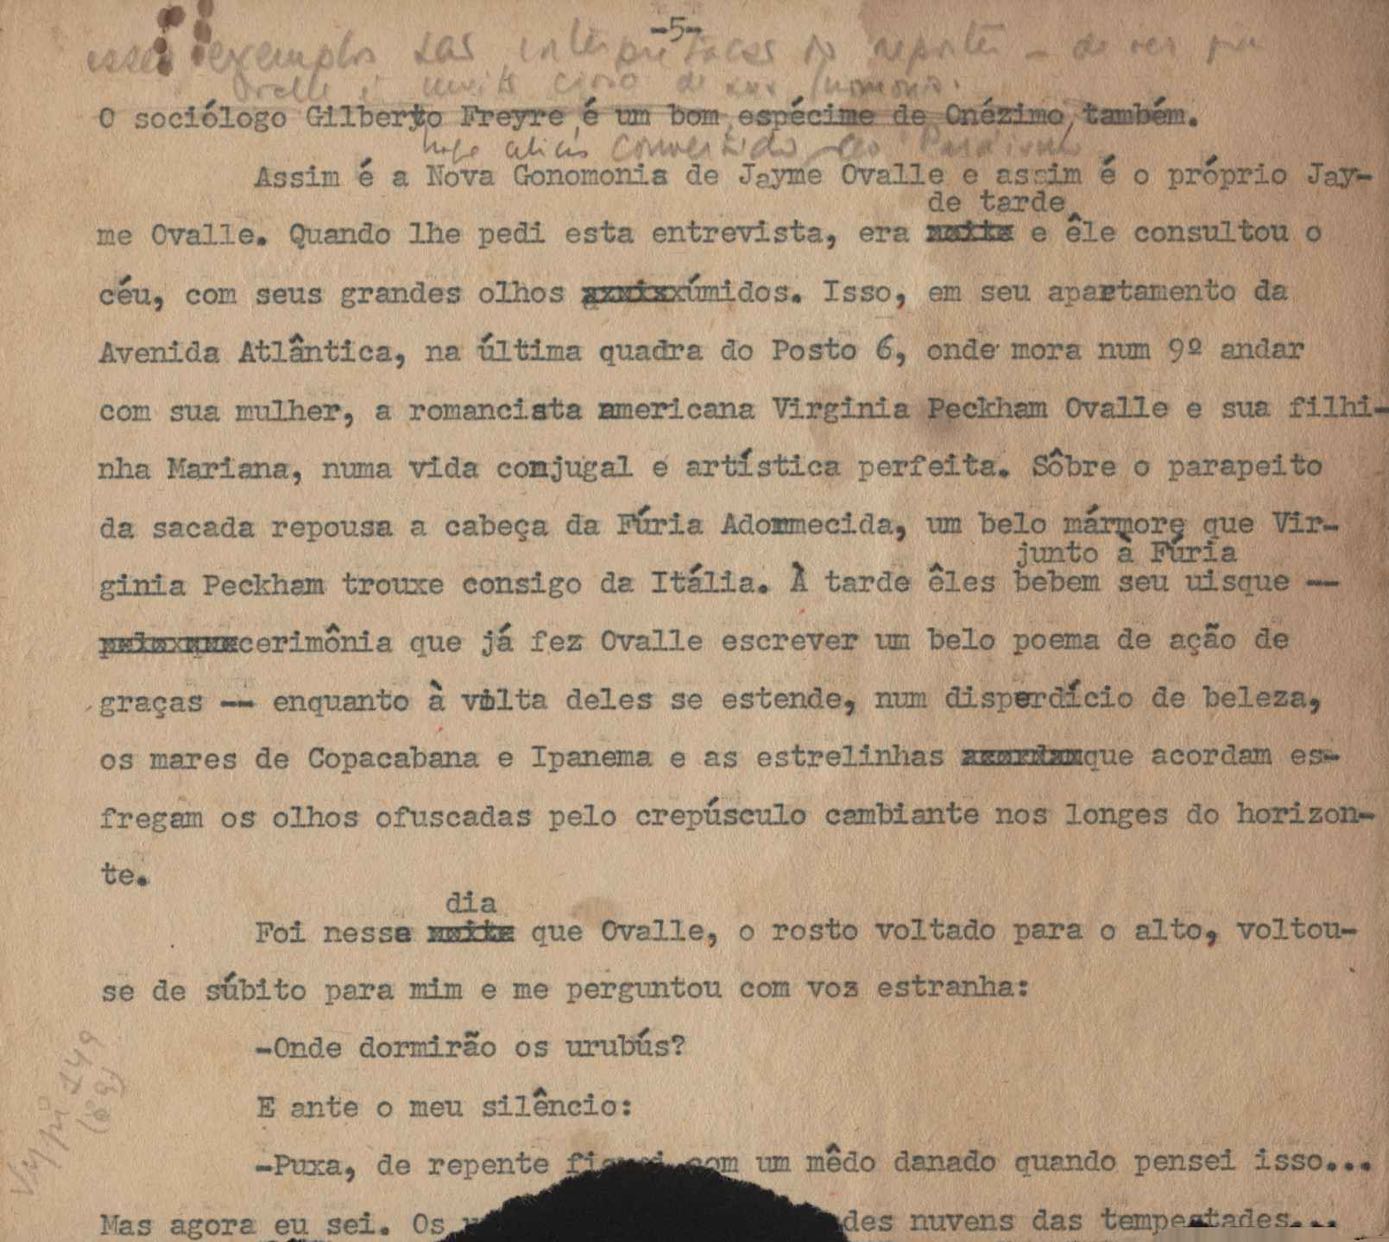 -5-
esses exemplos são interpretações do repórter - de vez que
Ovalle é muito cioso de sua gnomonia.
O sociólogo Gilberto Freyre é um bom espécime de Onézimo, também.
hoje aliás convertido ao
Assim é a Nova Gonomonia de Jayme Ovalle e assim é o próprio Jay-
de tarde
me Ovalle. Quando lhe pedi esta entrevista, era noite e êle consultou o
céu, com seus grandes olhos úmidos. Isso, em seu apartamento da
Avenida Atlântica, na última quadra do Posto 6, onde mora num 9º andar
com sua mulher, a romancista americana Virginia Peckham Ovalle e sua filhi-
nha Mariana, numa vida conjugal e artística perfeita. Sôbre o parapeito
da sacada repousa a cabeça da Fúria Adormecida, um belo mármore que Vir-
junto à Fúria
ginia Peckham trouxe consigo da Itália. À tarde êles bebem seu uisque --
cerimônia que já fez Ovalle escrever um belo poema de ação de
graças -- enquanto à volta deles se estende, num disperdício de beleza,
os mares de Copacabana e Ipanema e as estrelinhas que acordam es-
fregam os olhos ofuscadas pelo crepúsculo cambiante nos longes do horizon-
te.
dia
Foi nesse noite que Ovalle, o rosto voltado para o alto, voltou-
se de súbito para mim e me perguntou com voz estranha:
-Onde dormirão os urubús?
E ante o meu silêncio:
-Puxa, de repente fiquei com um mêdo danado quando pensei isso...
Mas agora eu sei. Os des nuvens das tempestades...
Vypi 149